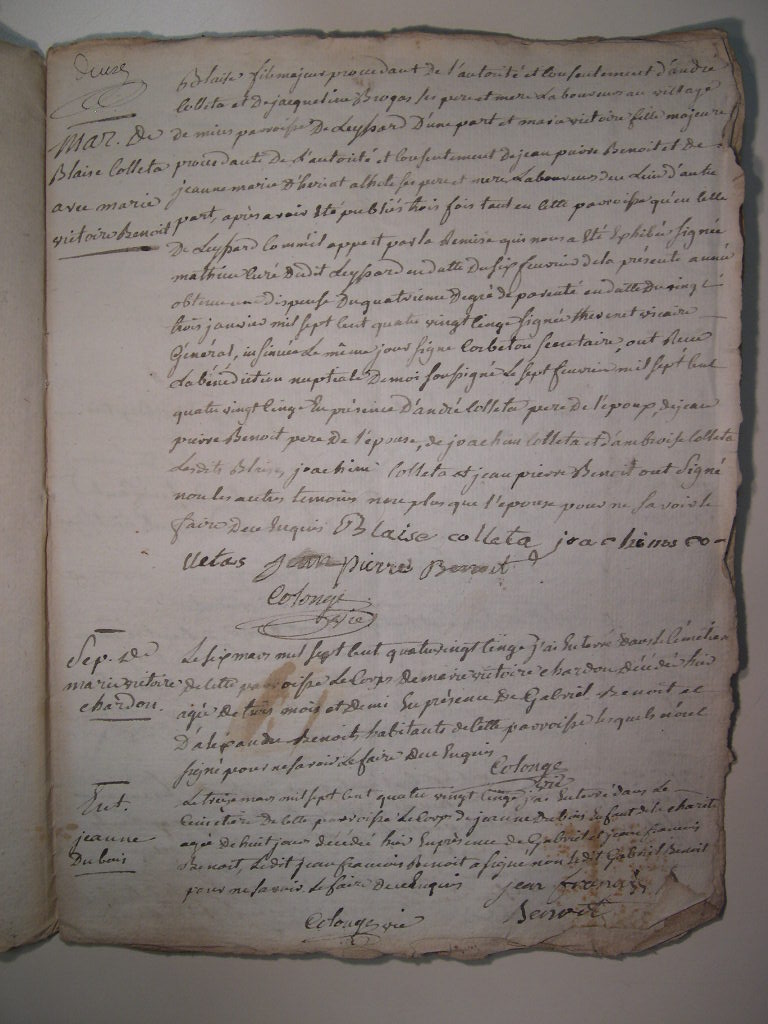 Blaise fils majeur procedant de l'autorité et consentement d'andré
Colleta et de jacqueline Brogas ses pere et mere Laboureurs au village
Mar. de
de mius paroisse De Leyssard D'une part et marie victoire fille majeure
Blaise Colleta
procedante de L'autorité et Consentement de jean pierre Benoit et de
avec marie
jeanne marie ses pere et mere Laboureurs du Lieu d'autre
victoire Benoit
part, après avoir été publiés trois fois tant en cette paroisse qu'en celle
De Leyssard Comm'il appert par la Remise qui nous a été Exhibée signée
mathieu Curé Dudit Leyssard en datte Du six fevrier de la présente année
obtenu une dispense Du quatrieme Degré de parenté en datte Du vingt
trois janvier mil sept cent quatre vingt cinq signée thevenet vicaire
Général, insinuée Le même jour signé Corbeton secretaire, ont Recu
La bénédiction nuptiale De moi soussigné Le sept fevrier mil sept cent
quatre vingt cinq En présence D'andré Colleta pere De l'époux, de jean
pierre Benoit pere De l'épouse, de joachim Colleta et d'ambroise Colleta
Lesdits Blaise, joachim Colleta et jean pierre Benoit ont signé
non les autres temoins non plus que l'épouse pour ne savoir le
faire De ce Enquis Blaise colleta joachims co-
lletas jean pierre Benoit
Colonge
vic
Sep. de
marie victoire
chardon.
Le six mars mil sept cent quatre vingt cinq j'ai Enterré dans Le Cémétiere
de cette paroisse Le Corps de marie victoire chardon décédée hier
agée De trois mois et demi En présence De Gabriel Benoit et
D'alexandre Benoit habitants de cette paroisse lesquels n'ont
signé pour ne savoir Le faire De ce Enquis
Colonge
vic
Ent.
jeanne
Dubois
Le treize mars mil sept cent quatre vingt cinq j'ai Enterré dans Le
Cimetiere de cette paroisse Le Corps de jeanne Dubois Enfant de la charité
agée De huit jours décédée hier En présence De Gabriel et jean francois
Benoit, Ledit jean francois Benoit a signé non Ledit Gabriel Benoit
pour ne savoir Le faire De ce Enquis jean françois
Benoit
Colonge vic